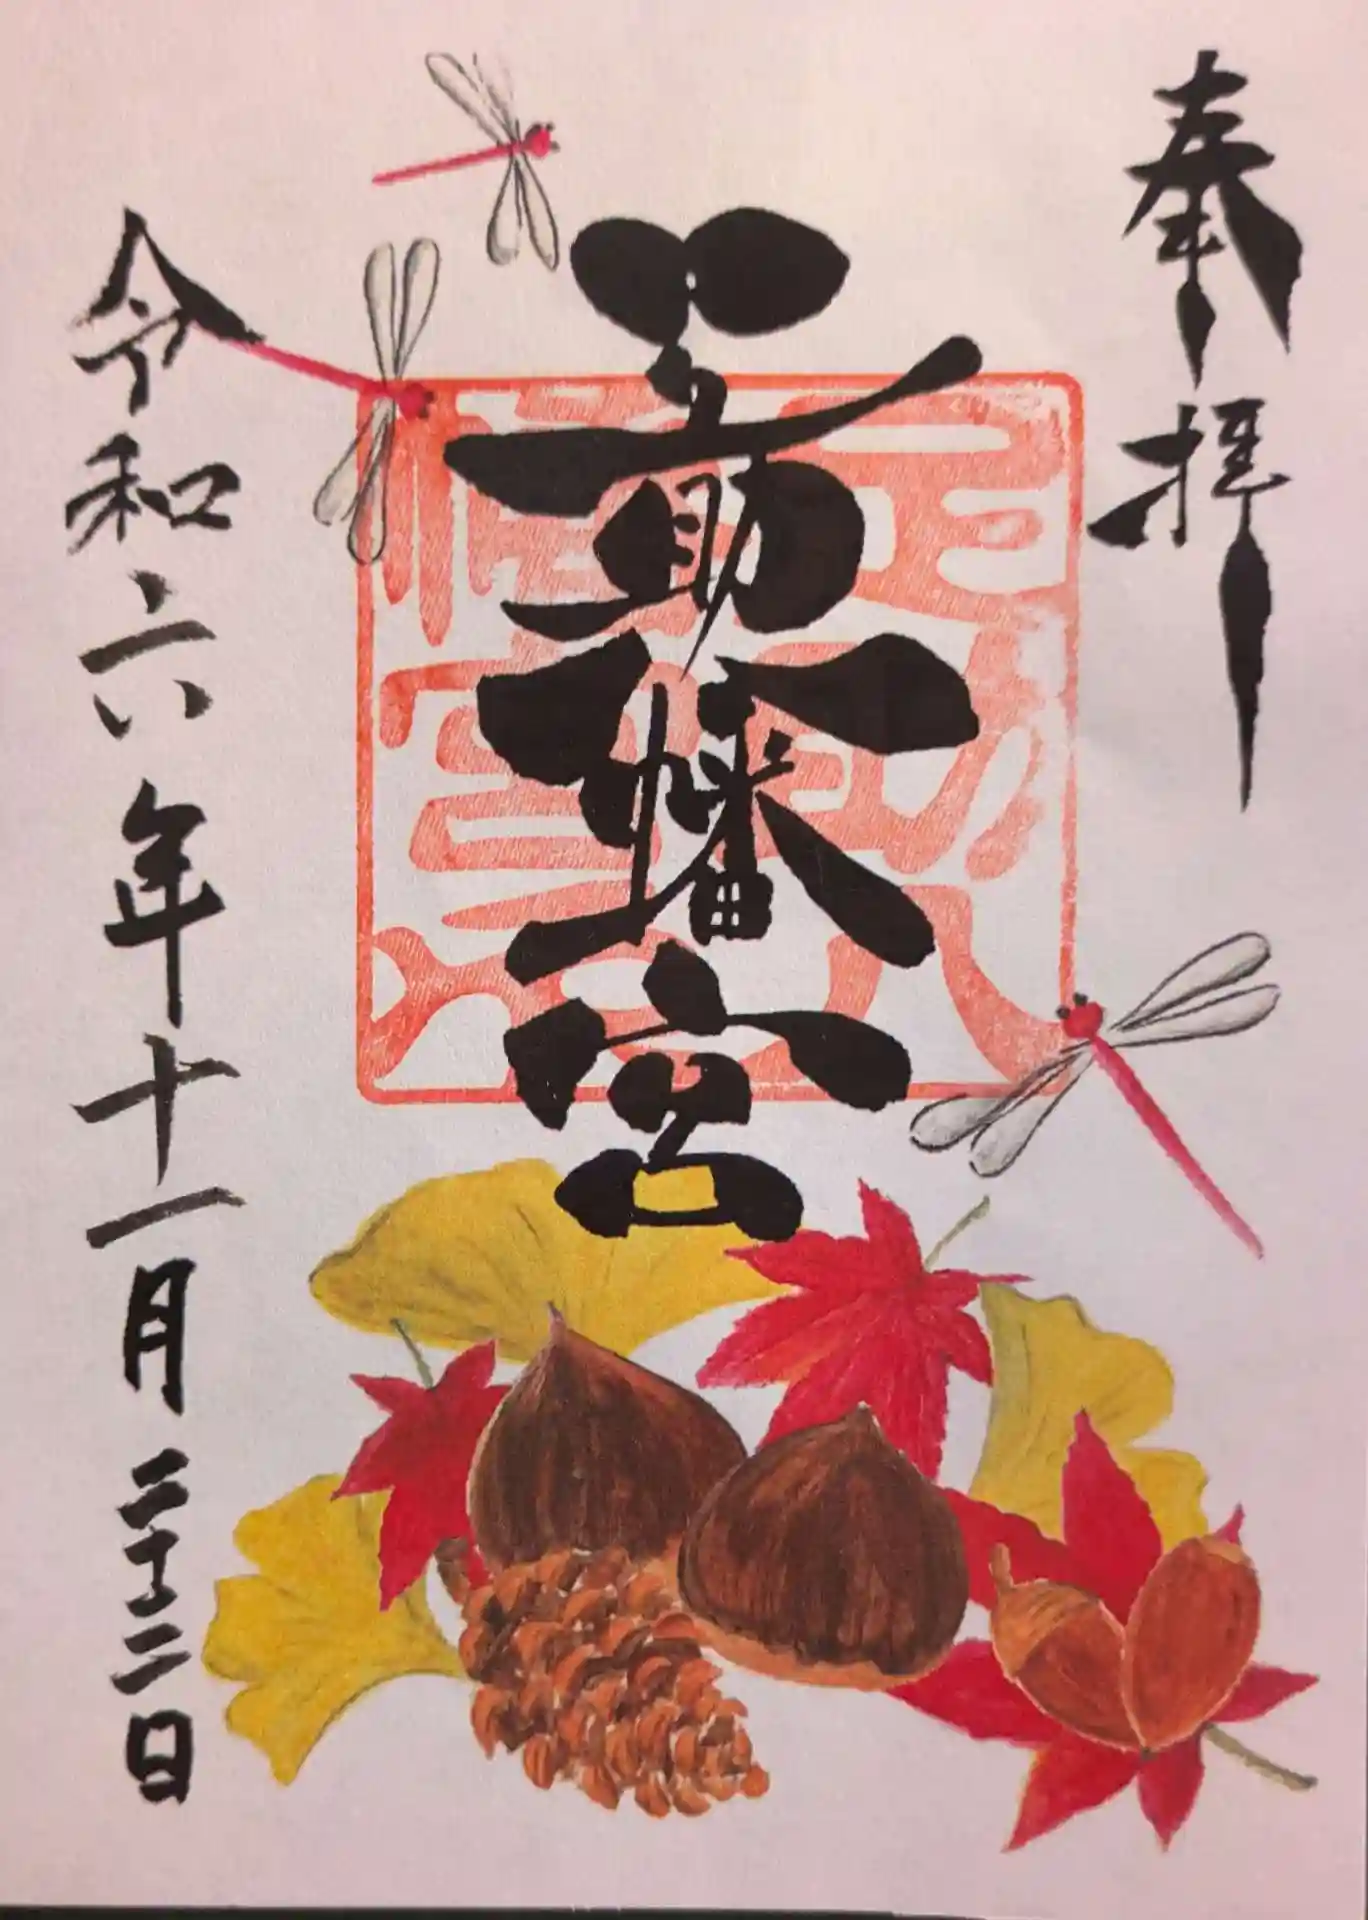 奉拝
八幡宮
令和六年十一月二十二日